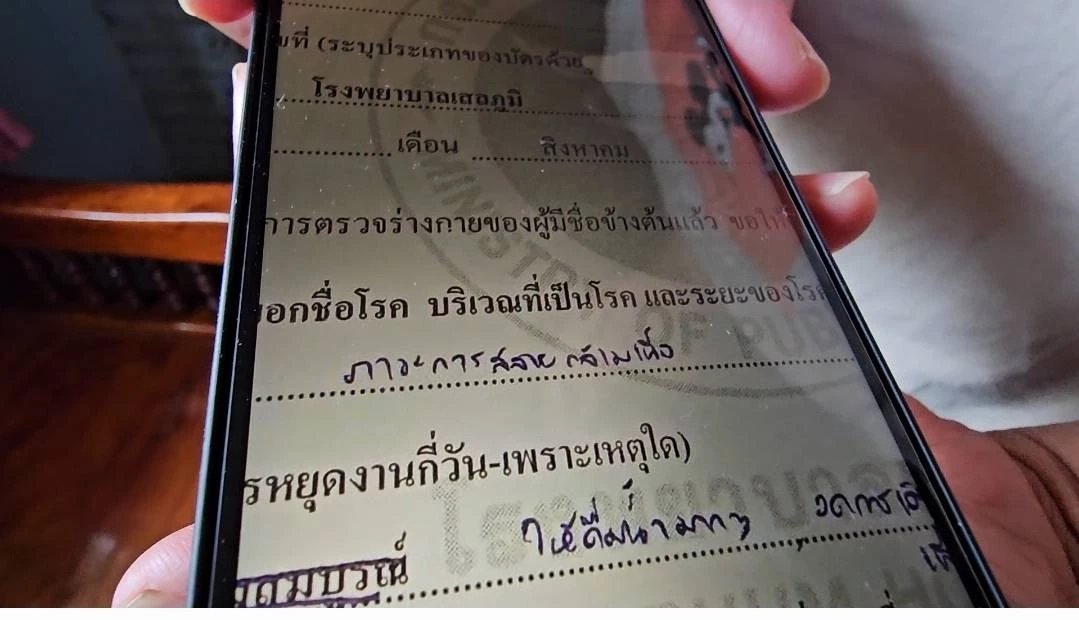 ที่ (ระบุประเภทของบัตรด้วย
โรงพยาบาลเสลภูมิ
เดือน สิงหาคม
การตรวจร่างกายของผู้มีชื่อข้างต้นแล้ว ขอให้
อกชื่อโรค บริเวณที่เป็นโรค และระยะของโรค
ภาวะการสลายกล้ามเนื้อ
รหยุดงานกี่วัน-เพราะเหตุใด)
ให้ดื่มน้ำมากๆ งดการ
สมบูรณ์
MINISTRY OF PUB
โรงพยาบาล